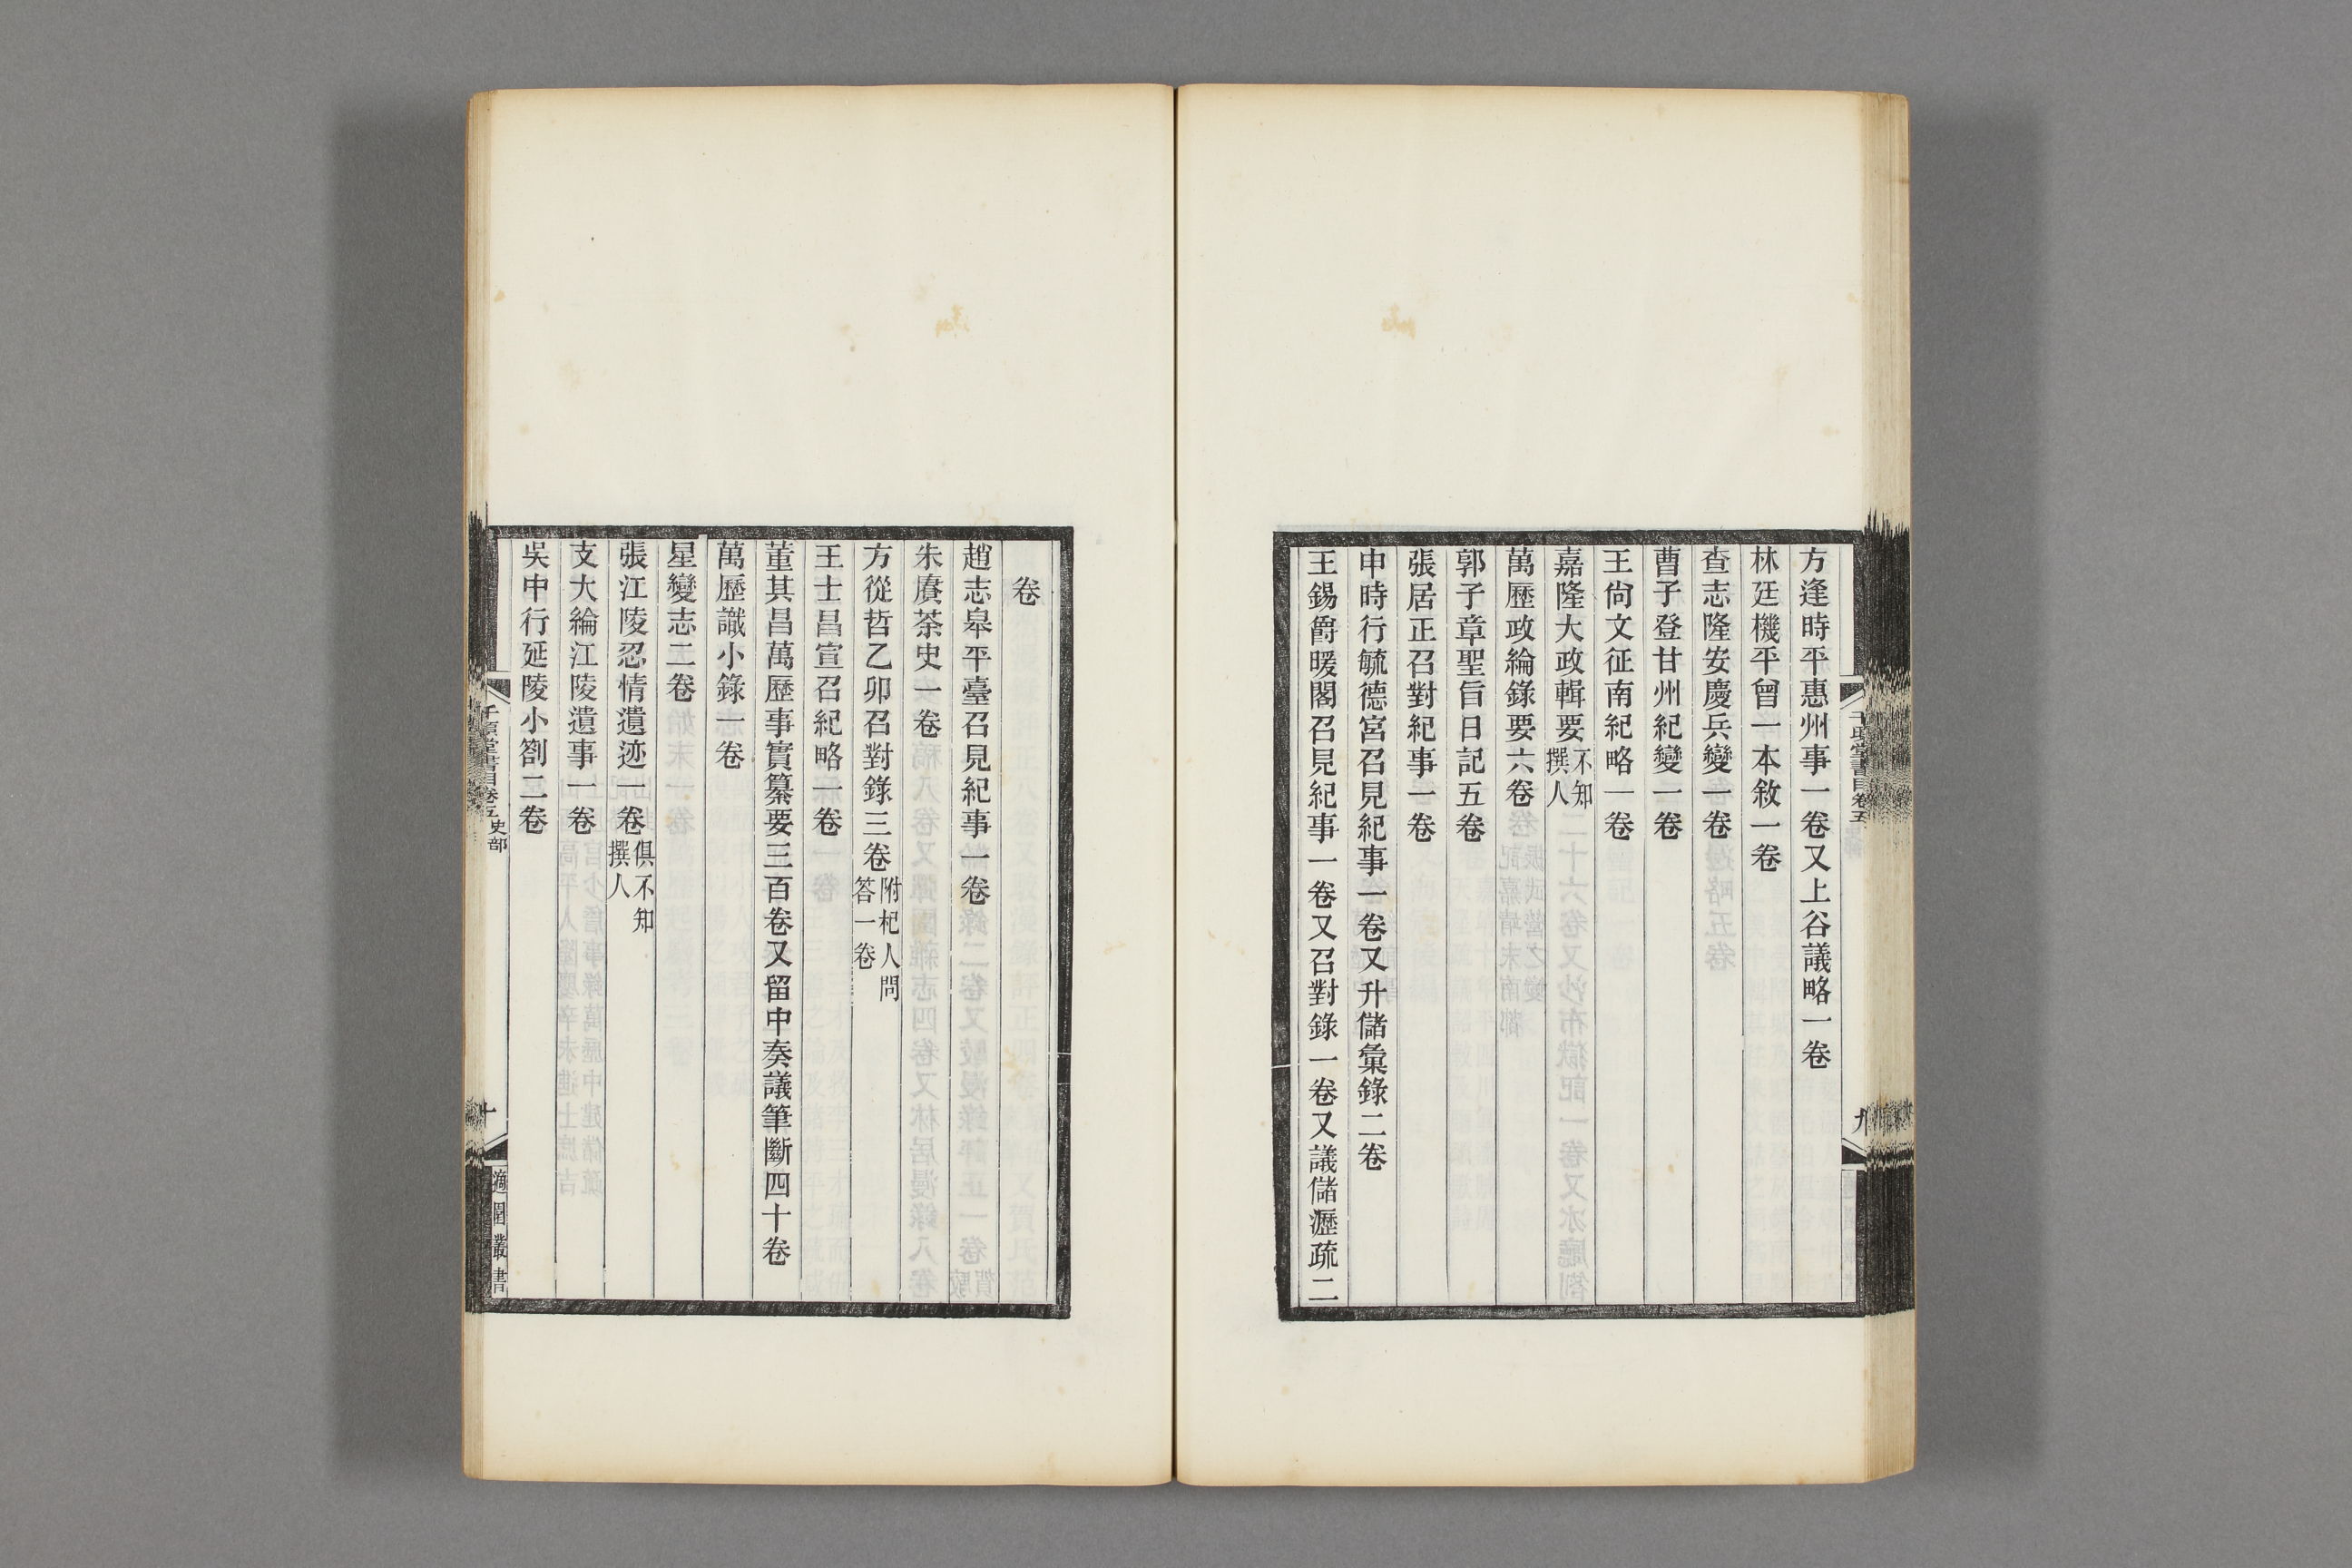 方逢時平惠州事一卷又上谷議略一卷
林廷機平曾一本敘一卷
查志隆安慶兵變一卷
曹子登甘州紀變一卷
王尙文征南紀略一卷
嘉隆大政輯要不知撰人
萬歷政綸錄要六卷
郭子章聖旨日記五卷
張居正召對紀事一卷
申時行毓德宮召見紀事一卷又升儲彙錄二卷
王錫爵暖閣召見紀事一卷又召對錄一卷又議儲瀝疏二
卷
趙志皋平臺召見紀事一卷
朱賡荼史一卷
方從哲乙卯召對錄三卷附杞人問答一卷
王士昌宣召紀略一卷
董其昌萬歷事實纂要三百卷又留中奏議筆斷四十卷
萬歷識小錄一卷
星變志二卷
張江陵忍情遺迹一卷俱不知撰人
支大綸江陵遺事一卷
吳中行延陵小劄二卷
千頃堂書目卷五 史部
十
適園叢書